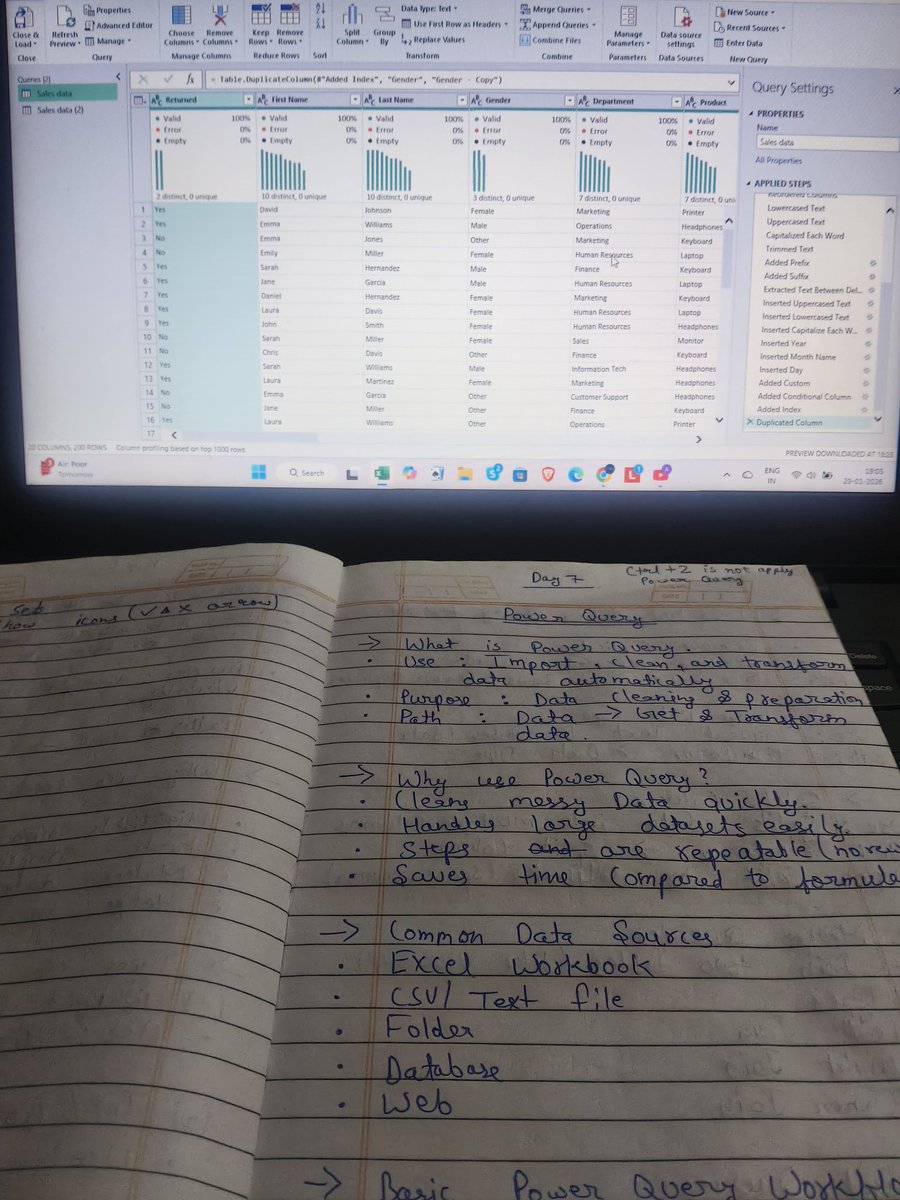 Close &
Load
Refresh
Preview
Properties
Advanced Editor
Manage
Choose
Columns
Remove
Columns
Keep
Rows
Remove
Rows
Split
Column
Group
By
Data Type: Text
Use First Row as Headers
Replace Values
Merge Queries
Append Queries
Combine Files
Manage
Parameters
Data source
settings
New Source
Recent Sources
Enter Data
Close
Query
Manage Columns
Reduce Rows
Sort
Transform
Combine
Parameters
Data Sources
New Query
Queries [2]
Sales data
Sales data (2)
fx
= Table.DuplicateColumn(#"Added Index", "Gender", "Gender - Copy")
Returned First Name Last Name Gender Department Product
Valid 100% Valid 100% Valid 100% Valid 100% Valid 100% Valid
Error 0% Error 0% Error 0% Error 0% Error 0% Error
Empty 0% Empty 0% Empty 0% Empty 0% Empty 0% Empty
2 distinct, 0 unique 10 distinct, 0 unique 10 distinct, 0 unique 3 distinct, 0 unique 7 distinct, 0 unique 7 distinct, 0 uni
1 Yes David Johnson Female Marketing Printer
2 Yes Emma Williams Male Operations Headphones
3 No Emma Jones Other Marketing Keyboard
4 No Emily Miller Female Human Resources Laptop
5 Yes Sarah Hernandez Male Finance Keyboard
6 Yes Jane Garcia Male Human Resources Laptop
7 Yes Daniel Hernandez Female Marketing Keyboard
8 Yes Laura Davis Female Human Resources Laptop
9 Yes John Smith Female Human Resources Headphones
10 No Sarah Miller Female Sales Monitor
11 No Chris Davis Other Finance Keyboard
12 Yes Sarah Williams Male Information Tech Headphones
13 Yes Laura Martinez Female Marketing Headphones
14 No Emma Garcia Other Customer Support Headphones
15 No Jane Miller Other Finance Keyboard
16 Yes Laura Williams Other Operations Printer
17
Query Settings
PROPERTIES
Name
Sales data
All Properties
APPLIED STEPS
Reordered Columns
Lowercased Text
Uppercased Text
Capitalized Each Word
Trimmed Text
Added Prefix
Added Suffix
Extracted Text Between Del...
Inserted Uppercased Text
Inserted Lowercased Text
Inserted Capitalize Each W...
Inserted Year
Inserted Month Name
Inserted Day
Added Custom
Added Conditional Column
Added Index
Duplicated Column
20 COLUMNS, 200 ROWS Column profiling based on top 1000 rows
PREVIEW DOWNLOADED AT
Air: Poor
Tomorrow
Search
ENG
IN
19:05
Delete
Set
how icons (✓ ▵ × arrow)
Day 7
Ctrl + Z is not apply
Power Query
Power Query
→ What is Power Query.
• Use : Import, clean, and transform
data automatically
• Purpose : Data Cleaning & preparation
• Path : Data → Get & Transform
data.
→ Why use Power Query?
• Cleans messy Data quickly.
• Handles large datasets easily.
• Steps and are repeatable (no rew
• Saves time Compared to formula
→ Common Data Sources
• Excel Workbook
• CSV/ Text file
• Folder
• Database
• Web
→ Basic Power Query Workflo